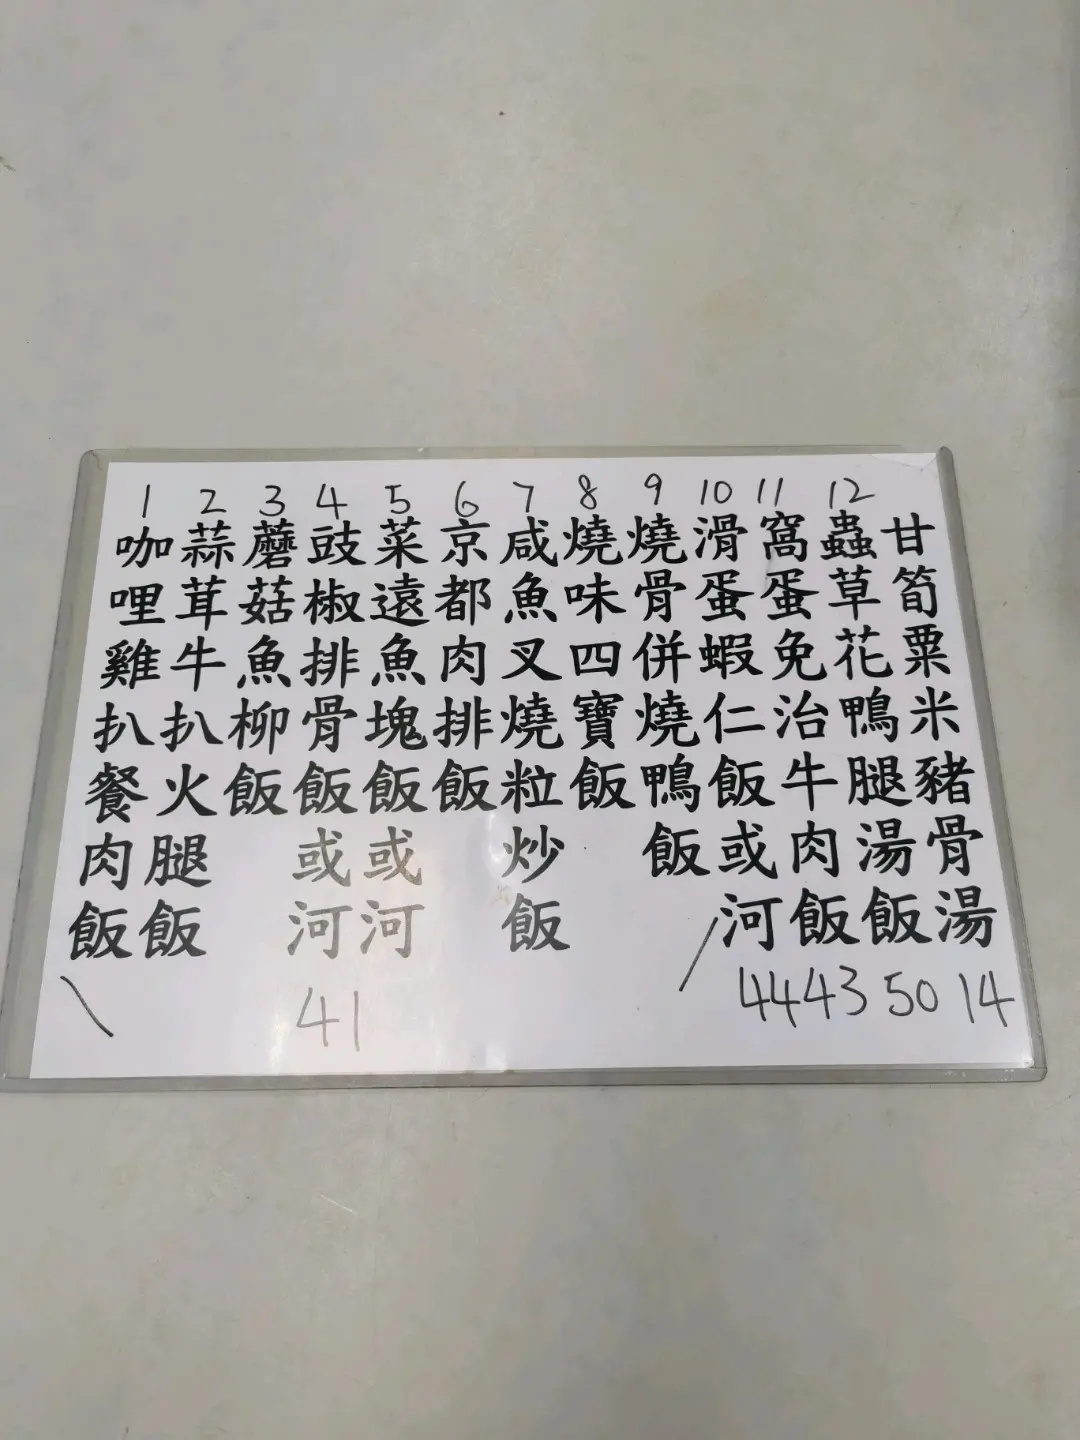 1 咖哩雞扒餐肉飯
2 蒜茸牛扒火腿飯
3 蘑菇魚柳飯
4 豉椒排骨飯或河
5 菜遠魚塊飯或河
6 京都肉排飯
7 咸魚叉燒粒炒飯
8 燒味四寶飯
9 燒骨併燒鴨飯
41
10 滑蛋蝦仁飯或河 44
11 窩蛋免治牛肉飯 43
12 蟲草花鴨腿湯飯 50
甘筍粟米豬骨湯 14